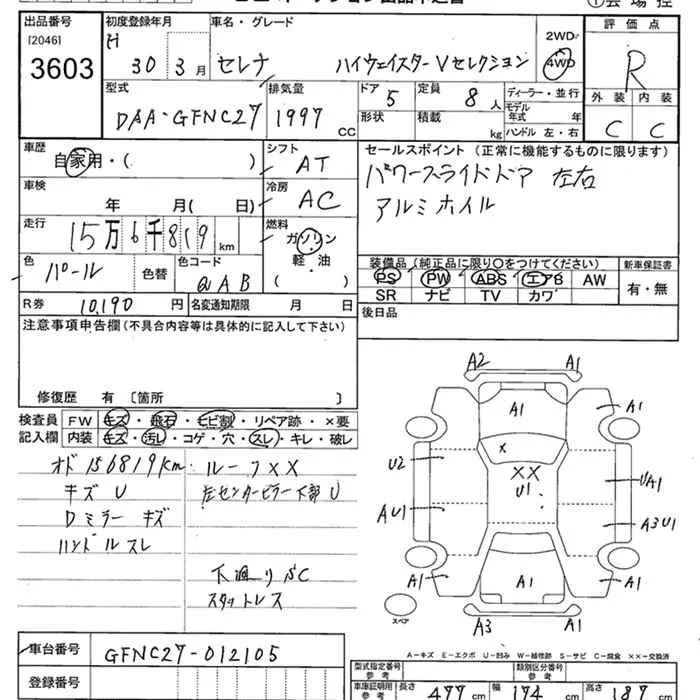 出品番号
[2046]
3603
初度登録年月
H 30 3月
車名・グレード
セレナ ハイウェイスターVセレクション
2WD
4WD
評価点
R
外装 内装
C C
型式
DAA-GFNC27
排気量
1997 CC
ドア
5
定員
8人
形状
積載
kg
ディーラー・並行
モデル年式 年
ハンドル 左・右
車歴
自家用・( )
シフト
AT
車検
年 月( 日)
冷房
AC
走行
15万6千819 km
燃料
ガソリン
軽・油
( )
色
パール
色替
色コード
QAB
R券 10,190 円
名変通知期限 月 日
セールスポイント (正常に機能するものに限ります)
パワースライドドア 左右
アルミホイル
装備品 (純正品に限り○をつけてください)
PS PW ABS エアB AW
SR ナビ TV カワ
新車保証書
有・無
後日品
注意事項申告欄(不具合内容等は具体的に記入して下さい)
修復歴 有 〔箇所 〕
検査員記入欄
FW キズ・飛石・ヒビ割・リペア跡・×要
内装 キズ・汚れ・コゲ・穴・スレ・キレ・破レ
オド156819km
キズ U
Dミラー キズ
ハンドルスレ
ルーフXX
左センターピラー下部 U
下廻りSC
スタットレス
A2 A1
A1 A1
U2 X XX
U1 UA1
AU1 A3U1
A1 A1 A1
A3 A1
スペア
A-キズ E-エクボ U-凹み W-補修跡 S-サビ C-腐食 ××-交換済
車台番号 GFNC27-012105
登録番号
型式指定番号
参考
類別区分番号
参考
車庫証明用
参考
長さ 477cm 幅 174cm 高さ 187